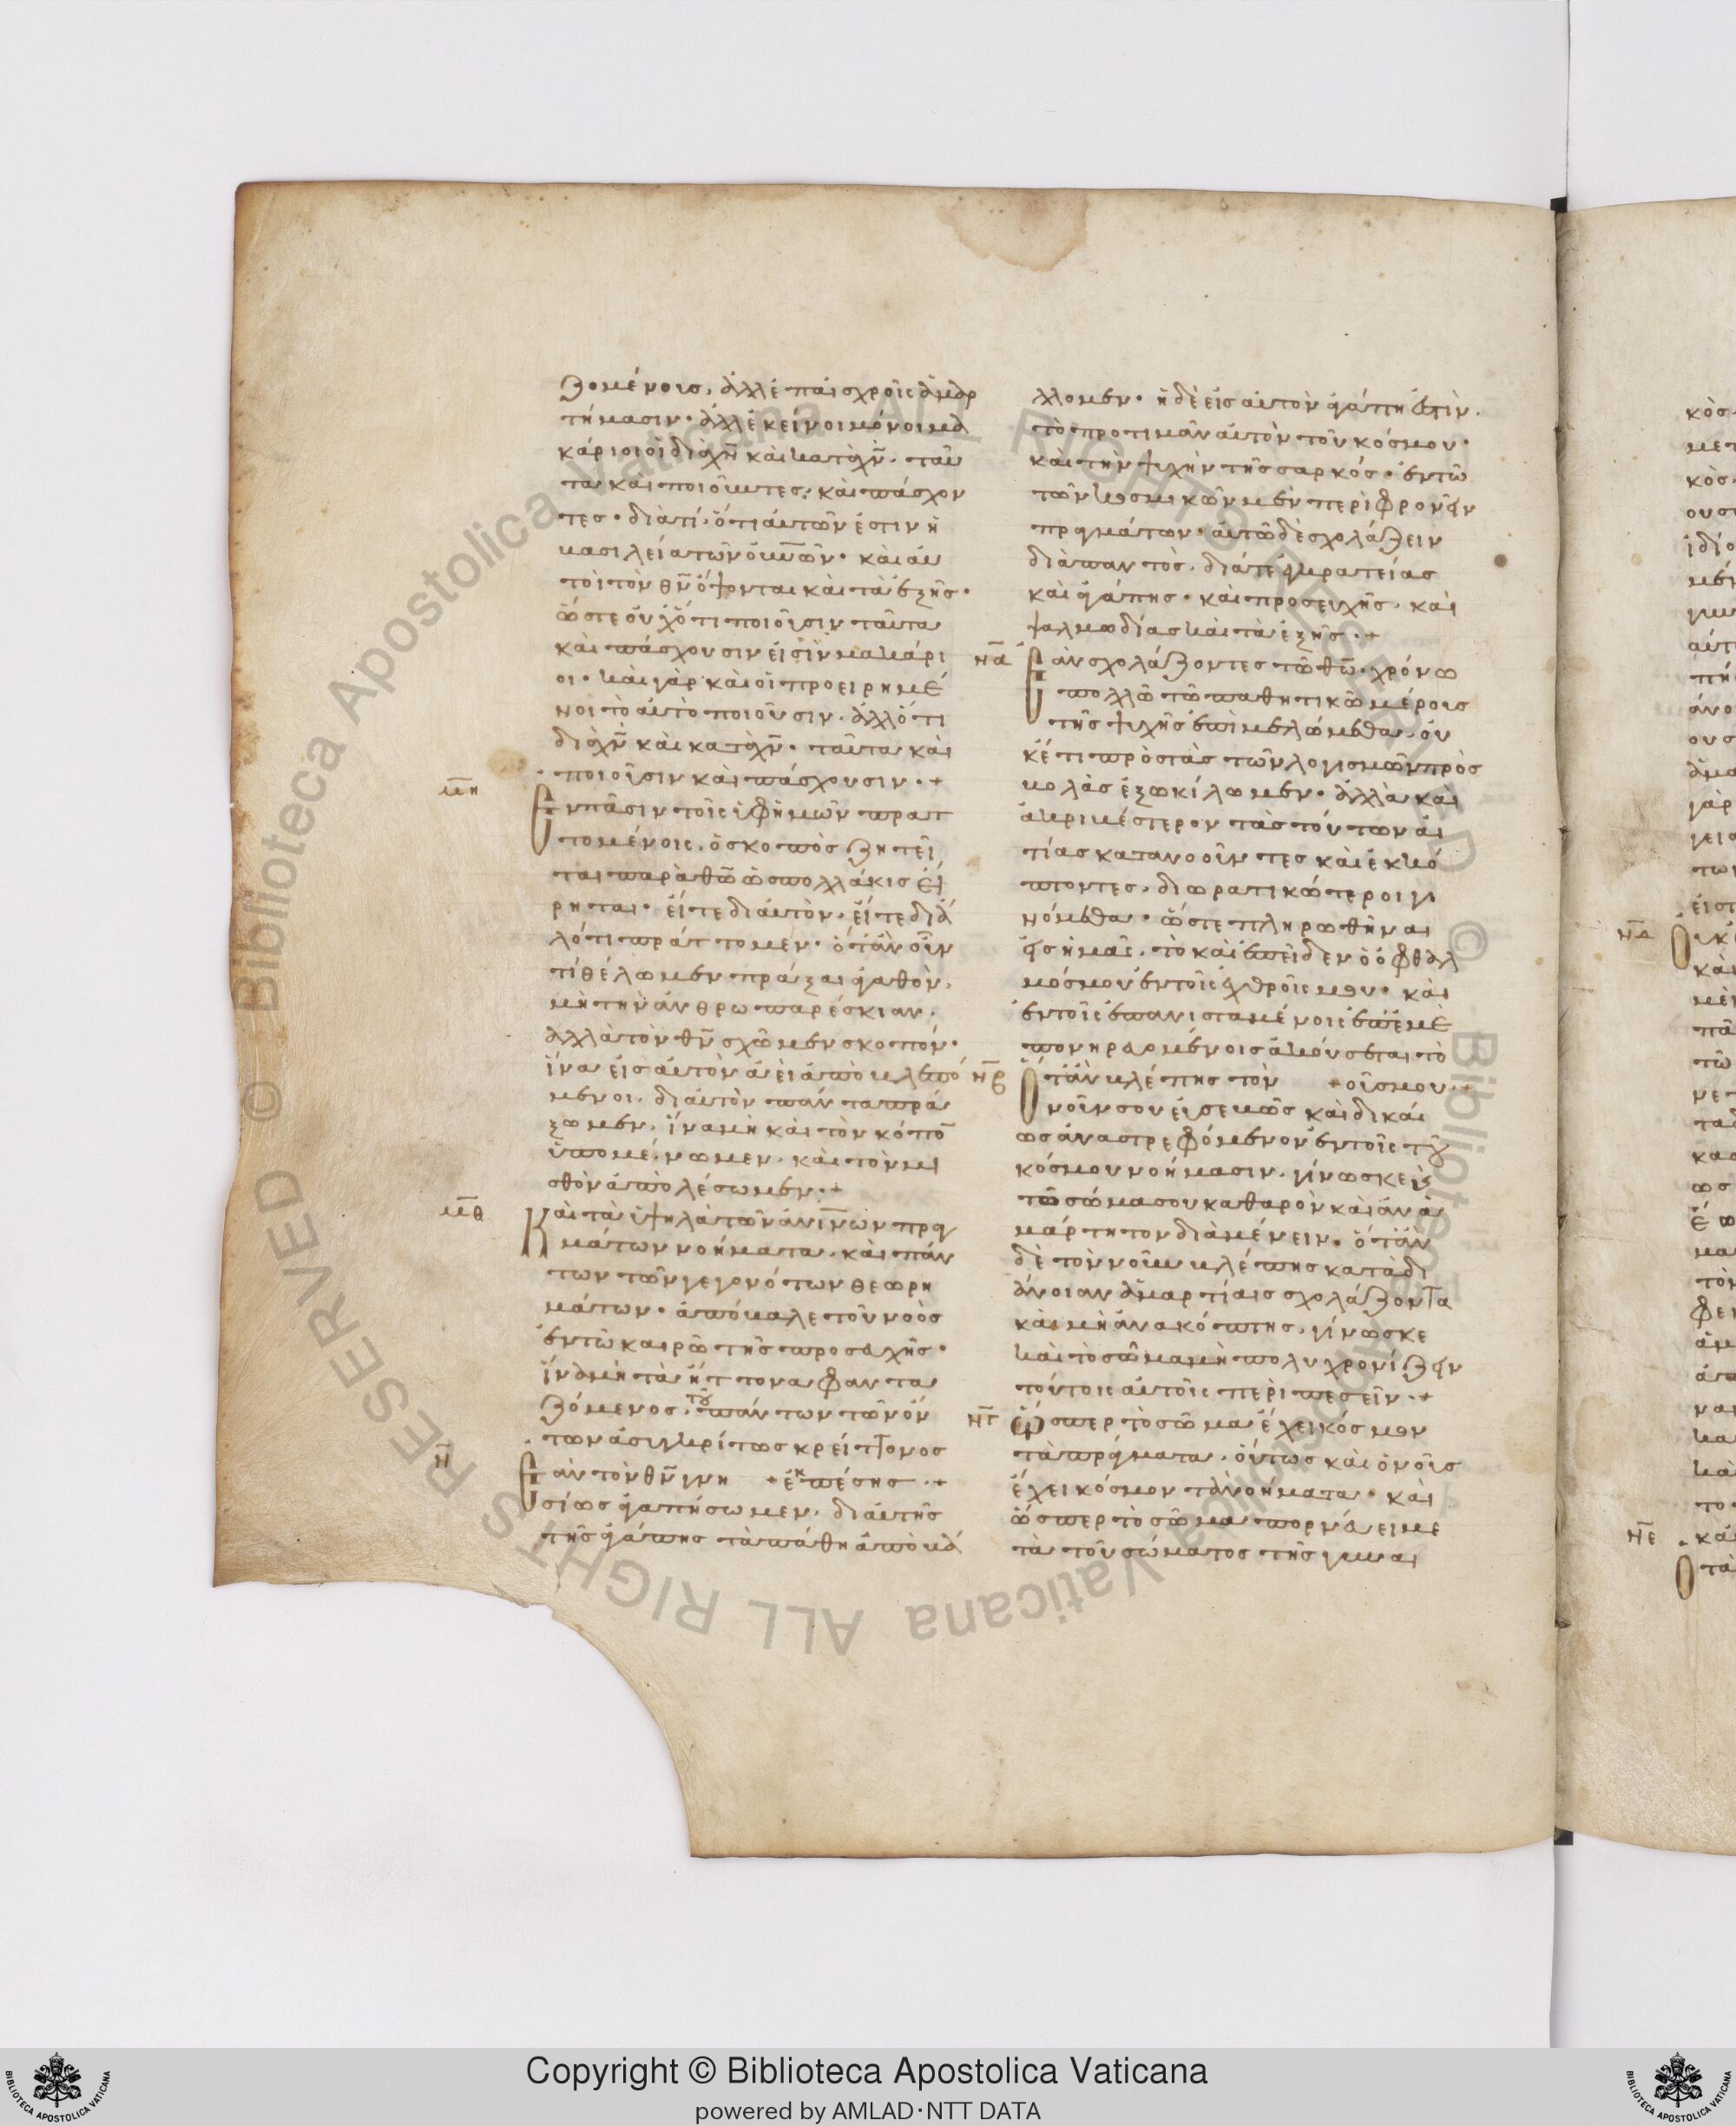 ζομένοις, ἀλλ ἐπ αἰσχροῖς ἁμαρ
τήμασιν· ἀλλ ἐκεῖνοι μόνοι μα
κάριοι οἱ διὰ χν̄ καὶ κατὰ χν̄· ταῦ
τα καὶ ποιοῦντες· καὶ πάσχον
τες· διατί, ὅτι αὐτῶν ἐστιν ἡ
βασιλεία τῶν οὐνῶν· καὶ αὐ
τοὶ τὸν θν̄ ὄψονται καὶ τὰ ἑξῆς·
ὥστε οὐχ ὅτι ποιοῦσιν ταῦτα
καὶ πάσχουσιν εἰσὶν μακάρι
οι· καὶ γὰρ καὶ οἱ προειρημέ
νοι τὸ αὐτὸ ποιοῦσιν. ἀλλ ὅτι
διὰ χν̄ καὶ κατὰ χν̄· ταῦτα καὶ
ποιοῦσιν καὶ πάσχουσιν·+
μη Ἐν πᾶσιν τοῖς ὑφ ἡμῶν πρατ
τομένοις, ὁ σκοπὸς ζητεῖ
ται παρὰ θῶ ὡς πολλάκις εἴ
ρηται· εἴτε δι αὐτὸν· εἴτε δι ἄ
λό τι πράττομεν· ὅταν οὖν
τί θέλωμεν πράξαι ἀγαθὸν,
μὴ τὴν ἀνθρωπαρέσκιαν,
ἀλλὰ τὸν θν̄ σχῶμεν σκοπόν·
ἵνα εἰς αὐτὸν ἀεὶ ἀποβλεπό
μενοι, δι αὐτὸν πάντα πρά
ξωμεν, ἵνα μὴ καὶ τὸν κόπο̄
ὑπομένωμεν, καὶ τὸν μι
σθὸν ἀπολέσωμεν·+
μθ Καὶ τὰ ὑψηλὰ τῶν ἀνίνων πραγ
μάτων νοήματα, καὶ πάν
των τῶν γεγονότων θεωρη
μάτων· ἀπόβαλε τοῦ νοὸς
ἐν τῶ καιρῶ τῆς προσευχῆς·
ἵνα μὴ τὰ ἥττονα φαντα
ζόμενος, τοῦ πάντων τῶν ὄν
των ἀσυγκρίτως κρείττονος
ν Ἐὰν τὸν θν̄ γνη +ἐκπέσης·+
σίως ἀγαπήσωμεν, δι αὐτῆς
τῆς ἀγάπης τὰ πάθη ἀποβά
λλομεν· ἡ δὲ εἰς αὐτὸν ἀγάπη ἐστὶν,
τὸ προτιμᾶν αὐτὸν τοῦ κόσμου·
καὶ τὴν ψυχὴν τῆς σαρκός· ἐν τῶ
τῶν κοσμικῶν μὲν περιφρονεῖν
πραγμάτων· αὐτῶ δὲ σχολάζειν
διαπαντὸς, διά τε ἐγκρατείας
καὶ ἀγάπης· καὶ προσευχῆς, καὶ
ψαλμωδίας καὶ τὰ ἑξῆς·+
να Ἐὰν σχολάζοντες τῶ θῶ, χρόνω
πολλῶ τῶ παθητικῶ μέροις
τῆς ψυχῆς ἐπιμελώμεθα, οὐ
κέτι πρὸς τὰς τῶν λογισμῶν προσ
βολὰς ἐξωκίλωμεν· ἀλλὰ καὶ
ἀκριβέστερον τὰς τούτων αἰ
τίας κατανοοῦντες καὶ ἐκκό
πτοντες, διορατικώτεροι γι
νόμεθα· ὥστε πληρωθῆναι
εἰς ἡμᾶς, τὸ καὶ ἐπεῖδεν ὁ ὀφθαλ
μός μου ἐν τοῖς ἐχθροῖς μου· καὶ
ἐν τοῖς ἐπανισταμένοις ἐπ ἐμὲ
πονηρευομένοις ἀκούσεται τὸ
νβ Ὅταν βλέπης τὸν +οὖς μου·+
νοῦν σου εὐσεβῶς καὶ δικαί
ως ἀναστρεφόμενον ἐν τοῖς τοῦ
κόσμου νοήμασιν, γίνωσκε
τὸ σῶμα σου καθαρὸν καὶ ἀνα
μάρτητον διαμένειν· ὅταν
δὲ τὸν νοῦν βλέπης κατὰ δι
άνοιαν ἁμαρτίαις σχολάζοντα
καὶ μὴ ἀνακόπτης, γίνωσκε
καὶ τὸ σῶμα μὴ πολυχρονίζειν
τούτοις αὐτοῖς περιπεσεῖν·+
νγ Ὥσπερ τὸ σῶμα ἔχει κόσμον
τὰ πράγματα, οὕτως καὶ ὁ νοῦς
ἔχει κόσμον τὰ νοήματα· καὶ
ὥσπερ τὸ σῶμα πορνεύει με
τὰ τοῦ σώματος τῆς γυναι
νδ
νε
Copyright © Biblioteca Apostolica Vaticana
powered by AMLAD·NTT DATA